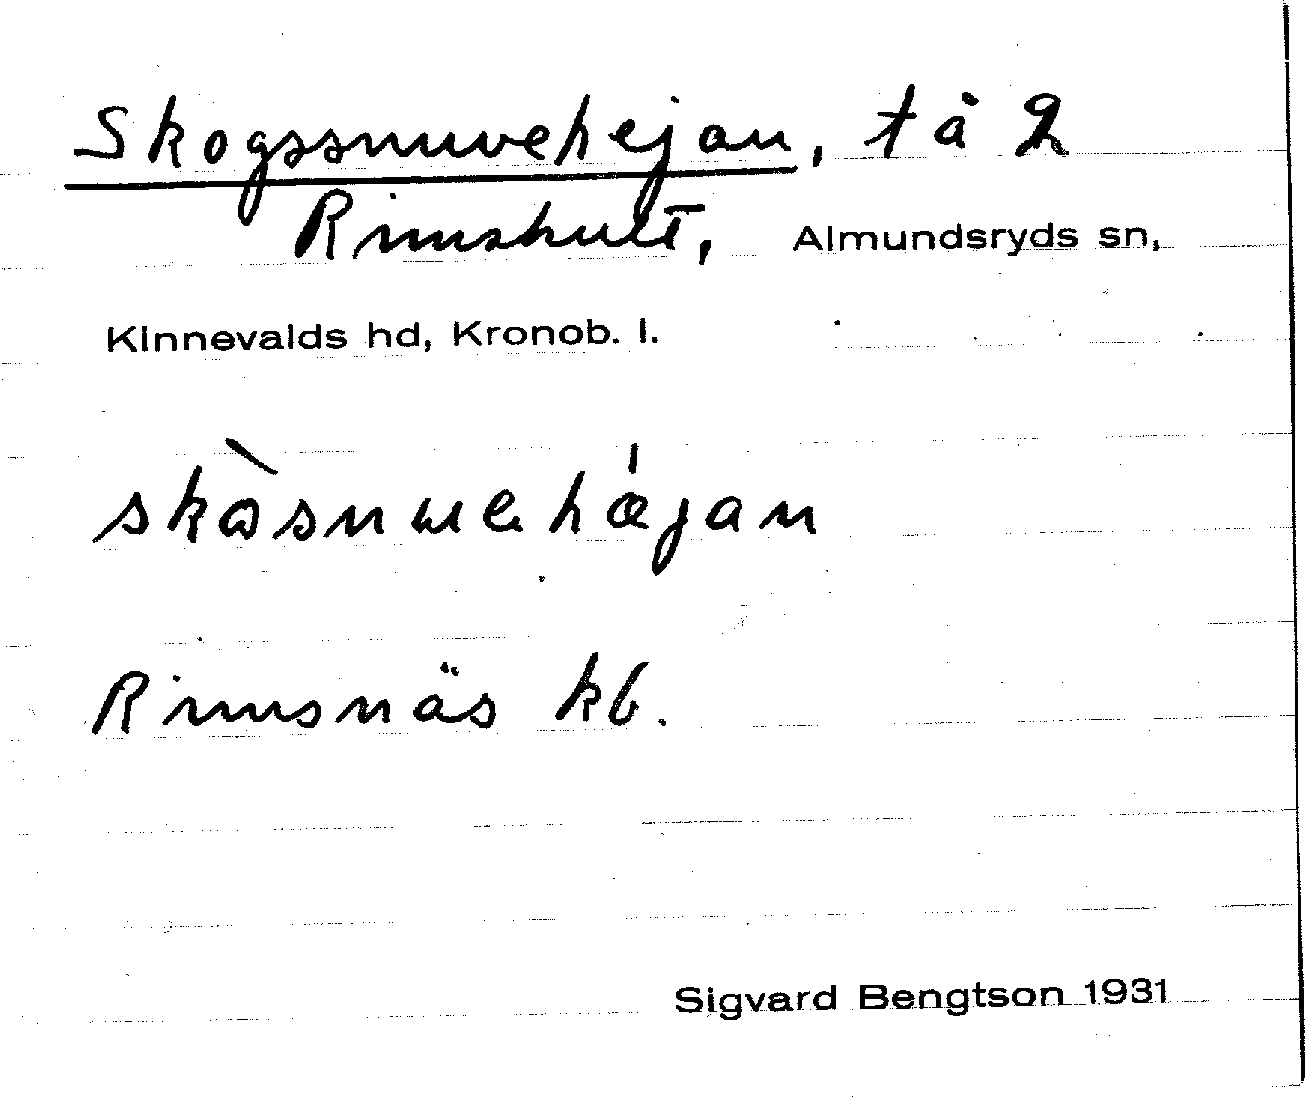 Skogssnuvehejan, tå 2
Rimshult, Almundsryds sn,
Kinnevalds hd, Kronob. l.
skɷ̀snɯehæ̍jan
Rimsnäs kb.
Sigvard Bengtson 1931